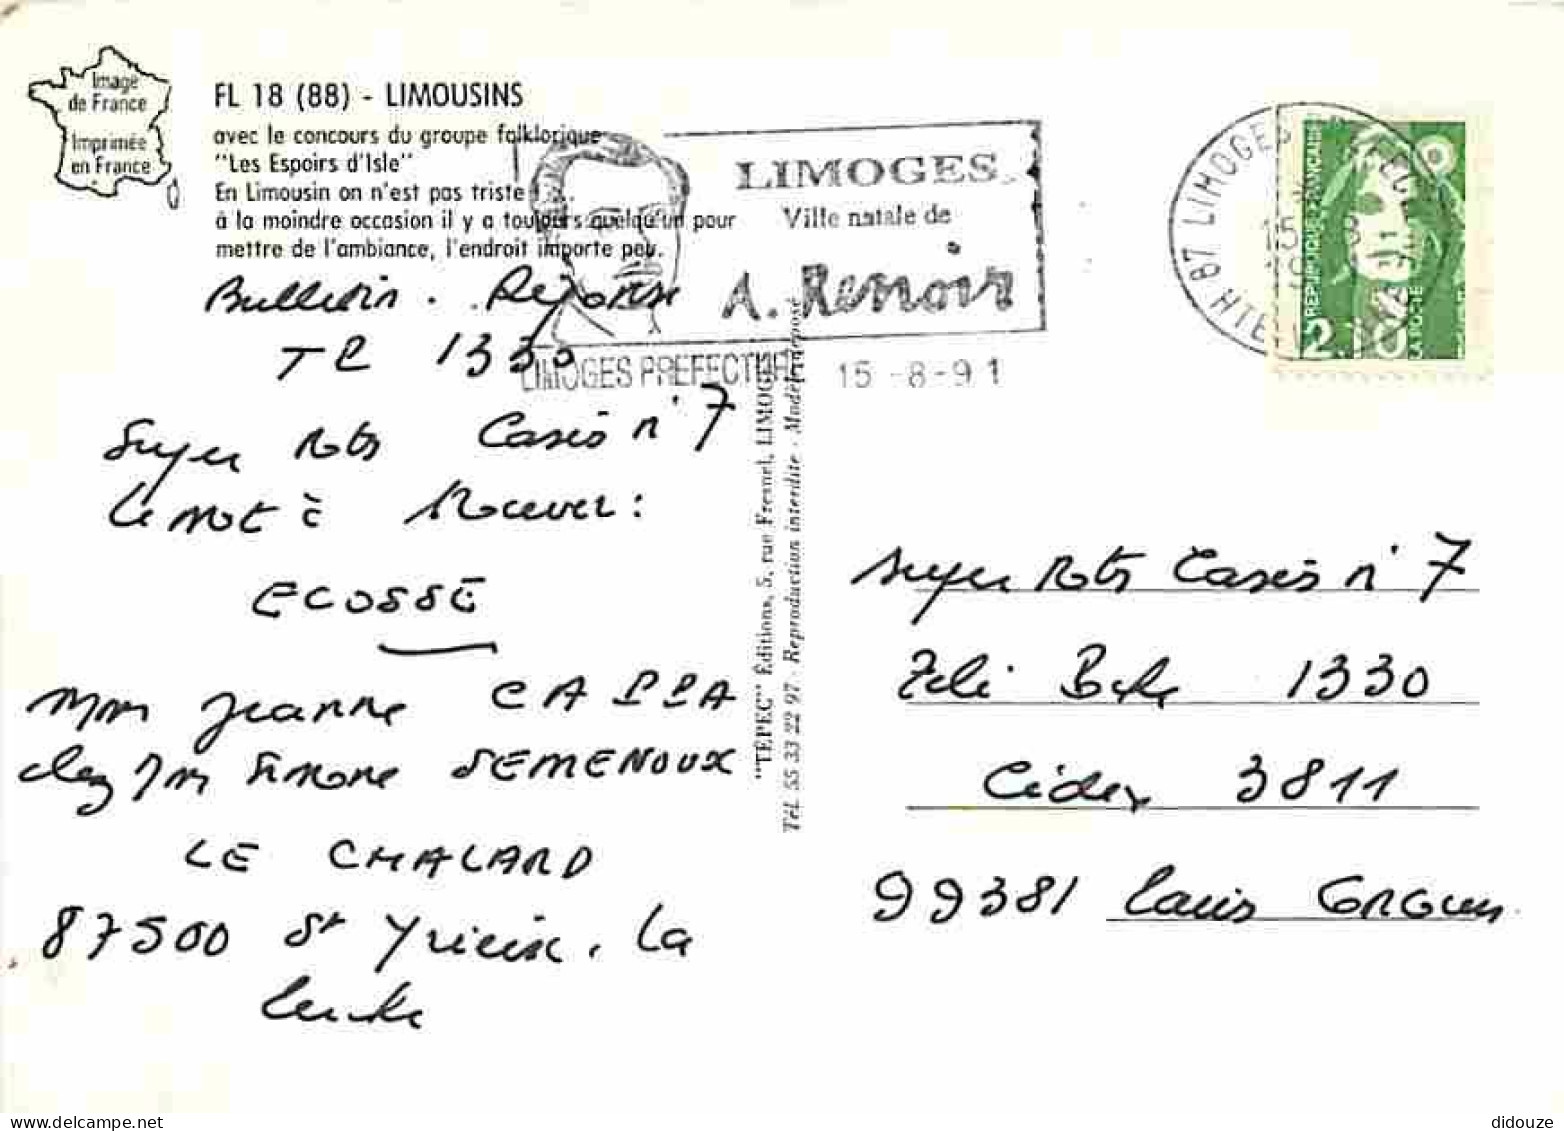 Image
de France
Imprimée
en France
FL 18 (88) - LIMOUSINS
avec le concours du groupe folklorique
"Les Espoirs d'Isle"
En Limousin on n'est pas triste !...
à la moindre occasion il y a toujours quelqu'un pour
mettre de l'ambiance, l'endroit importe peu.
LIMOGES
Ville natale de
A. Renoir
LIMOGES PREFECTURE 15-8-91
87 LIMOGES PREFECTURE
15
HTE-VIENNE
REPUBLIQUE FRANÇAISE
2.10
LA POSTE
Bulletin. Réponse
TE 1330
Super Mots Casés n° 7
Le mot à trouver :
ECOSSE
Mm Jeanne
chez Mm Simone SEMENOUX
LE CHALARD
87500 St Yrieix. La
Perche
"TÉPEC" Éditions, 5, rue Fresnel, LIMOGES
Tél. 55 33 22 97 - Reproduction interdite - Modèle déposé
Super Mots Casés n° 7
Télé Boîte 1330
Cidex 3811
99381 Paris Concours
didouze